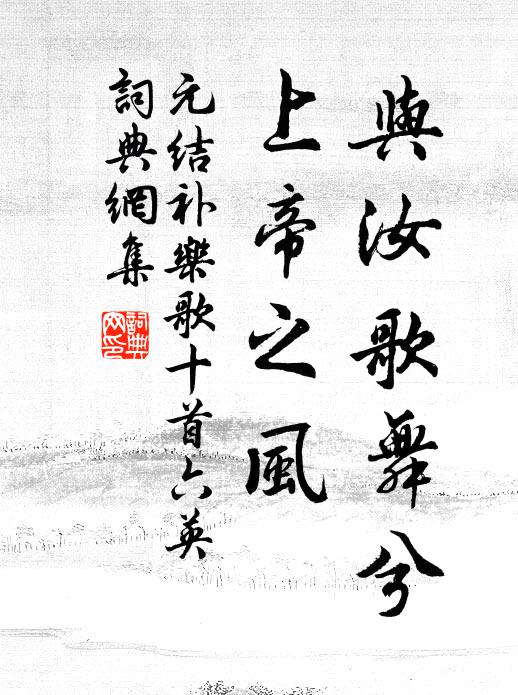 與汝歌舞兮
上帝之風
元结补樂歌十首六英
詞典網集
詞典网印